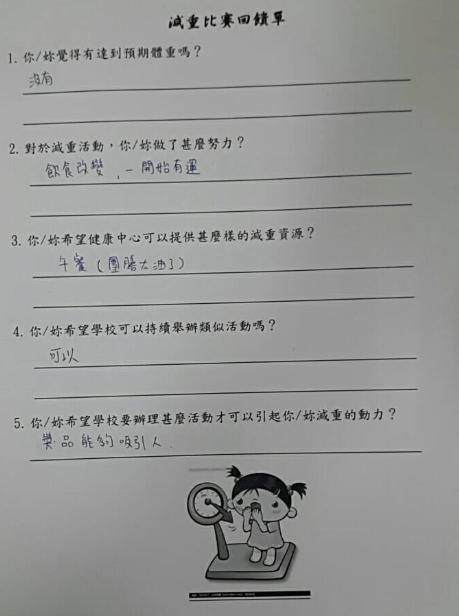 減重比賽回饋單
1. 你/妳覺得有達到預期體重嗎？
沒有
2. 對於減重活動，你/妳做了甚麼努力？
飲食改變，一開始有運
3. 你/妳希望健康中心可以提供甚麼樣的減重資源？
午餐（團膳太油了）
4. 你/妳希望學校可以持續舉辦類似活動嗎？
可以
5. 你/妳希望學校要辦理甚麼活動才可以引起你/妳減重的動力？
獎品能夠吸引人.